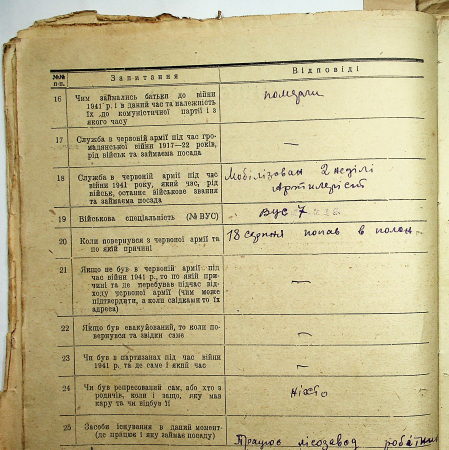 №№ п-п. Запитання Відповіді
16 Чим займались батьки до війни
1941 р. і в даний час та належність
їх до комуністичної партії і з
якого часу
померли
17 Служба в червоній армії під час гро-
мадянської війни 1917—22 років,
рід військ та займаєма посада
—
18 Служба в червоній армії під час
війни 1941 року, який час, рід
військ, останнє військове звання
та займаєма посада
Мобілізован 2 неділі
Артилерист
19 Військова спеціальність (№ ВУС)
Вус 7
20 Коли повернувся з червоної армії та
по якій причині
18 серпня попав в полон
21 Якщо не був в червоній армії під
час війни 1941 р., то по якій при-
чині та де перебував підчас від-
ходу червоної армії (чим може
підтвердити, а коли свідками то їх
адреса)
—
22 Якщо був евакуйований, то коли по-
вернувся та звідки саме
—
23 Чи був в партизанах під час війни
1941 р. та де саме і який час
—
24 Чи був репресований сам, або хто з
родичів, коли і защо, яку мав
кару та чи відбув її
Ніхто
25 Засоби існування в даний момент
(де працює і яку займає посаду)
Працює лісозавод робітник